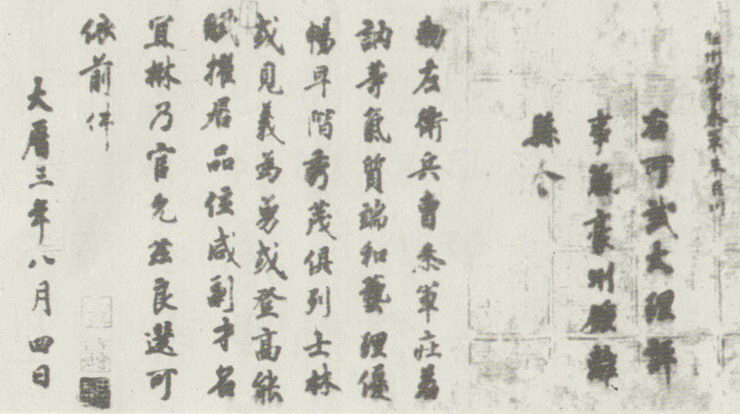 睦州錄事參軍朱巨川
右可試大理評
事兼豪州鍾離
縣令
勅左衛兵曹參軍莊若
訥等氣質端和藝理優
暢早階秀茂俱列士林
或見義為勇或登高能
賦擢居品位咸副才名
宜楙乃官允茲良選可
依前件
大曆三年八月四日